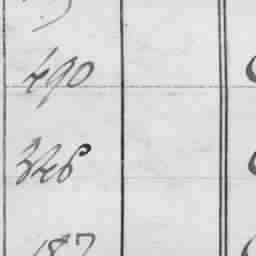 490
346
187